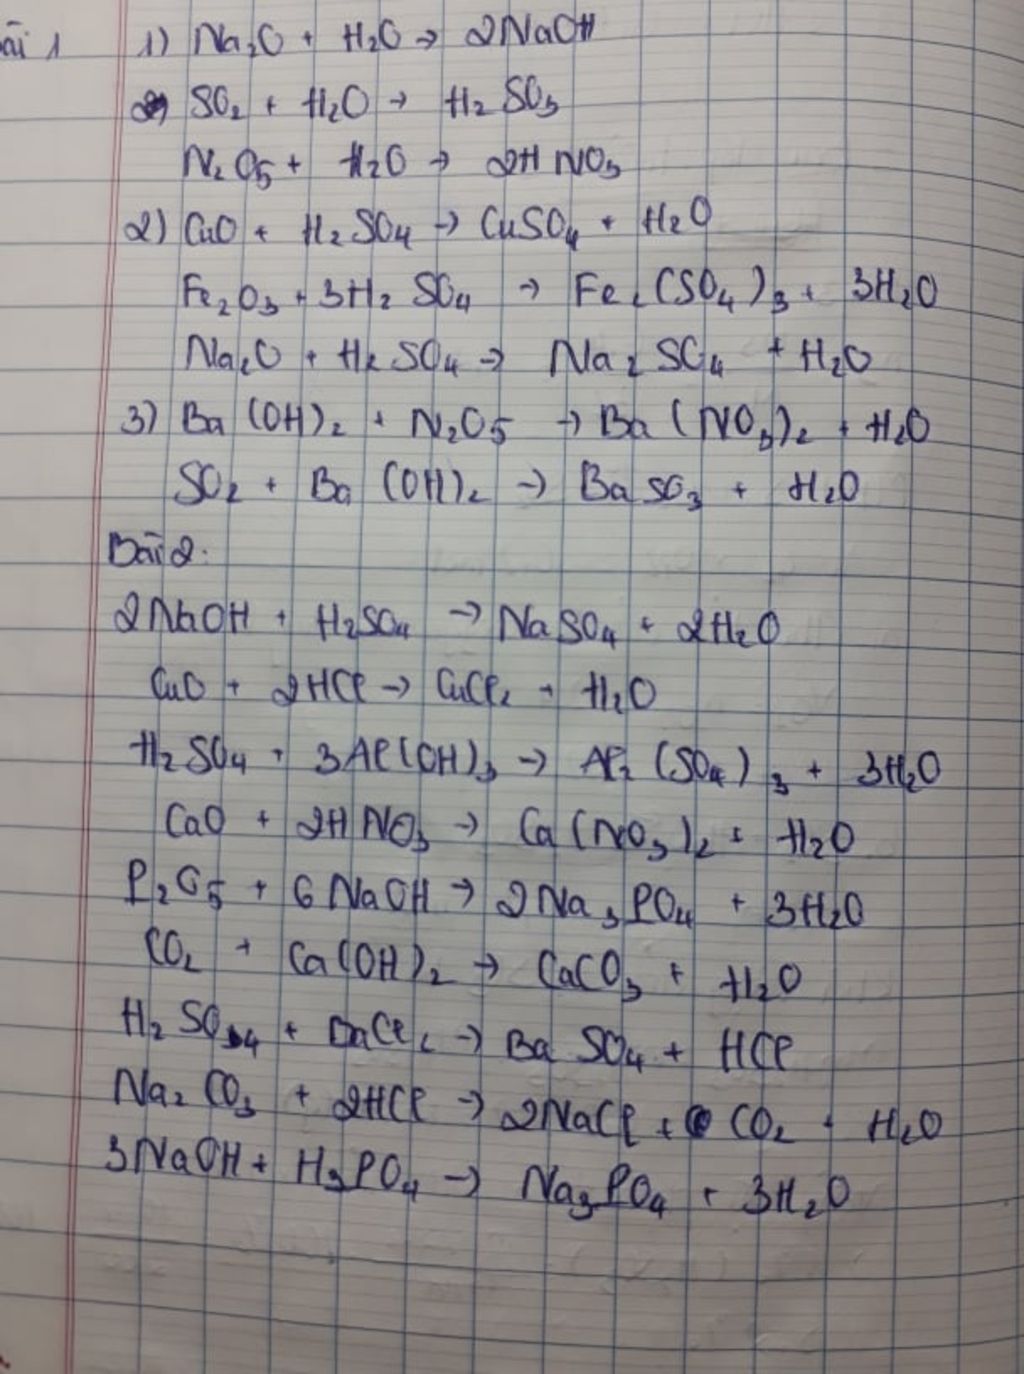 ài 1 1) Na₂O + H₂O → 2NaOH
SO₂ + H₂O → H₂SO₃
N₂O₅ + H₂O → 2HNO₃
2) CuO + H₂SO₄ → CuSO₄ + H₂O
Fe₂O₃ + 3H₂SO₄ → Fe₂(SO₄)₃ + 3H₂O
Na₂O + H₂SO₄ → Na₂SO₄ + H₂O
3) Ba(OH)₂ + N₂O₅ → Ba(NO₃)₂ + H₂O
SO₂ + Ba(OH)₂ → BaSO₃ + H₂O
Bài 2:
2NaOH + H₂SO₄ → NaSO₄ + 2H₂O
CuO + 2HCl → CuCl₂ + H₂O
H₂SO₄ + 3Al(OH)₃ → Al₂(SO₄)₃ + 3H₂O
CaO + 2HNO₃ → Ca(NO₃)₂ + H₂O
P₂O₅ + 6NaOH → 2Na₃PO₄ + 3H₂O
CO₂ + Ca(OH)₂ → CaCO₃ + H₂O
H₂SO₄ + BaCl₂ → BaSO₄ + HCl
Na₂CO₃ + 2HCl → 2NaCl + CO₂ + H₂O
3NaOH + H₃PO₄ → Na₃PO₄ + 3H₂O